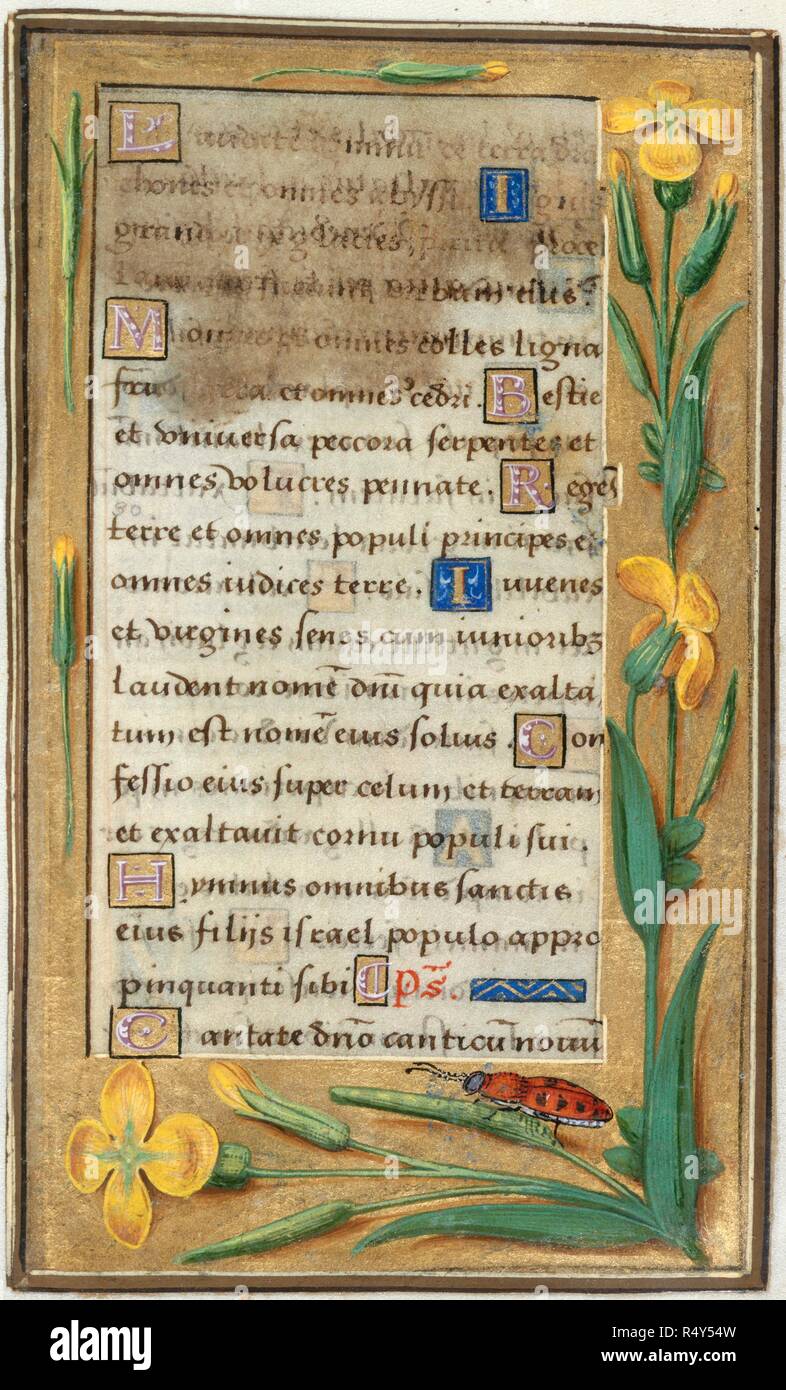 Laudate omnia et terra dra
chones et omnes abyssi. Ignis
grando nix glacies, procel
verbum eius.
Montes omnes colles ligna
et omnes cedri. Bestie
et vniuersa peccora serpentes et
omnes volucres pennate. Reges
terre et omnes populi principes e
omnes iudices terre. Iuuenes
et virgines senes cum iunioribꝫ
laudent nomē dnī quia exalta
tum est nomē eius solius. Con
fessio eius super celum et terram
et exaltauit cornu populi sui.
Hymnus omnibus sanctis
eius filijs israel populo appro
pinquanti sibi ps̄.
Cantate dnō canticū nouū
a alamy stock photo
alamy
Image ID: R4Y54W
www.alamy.com